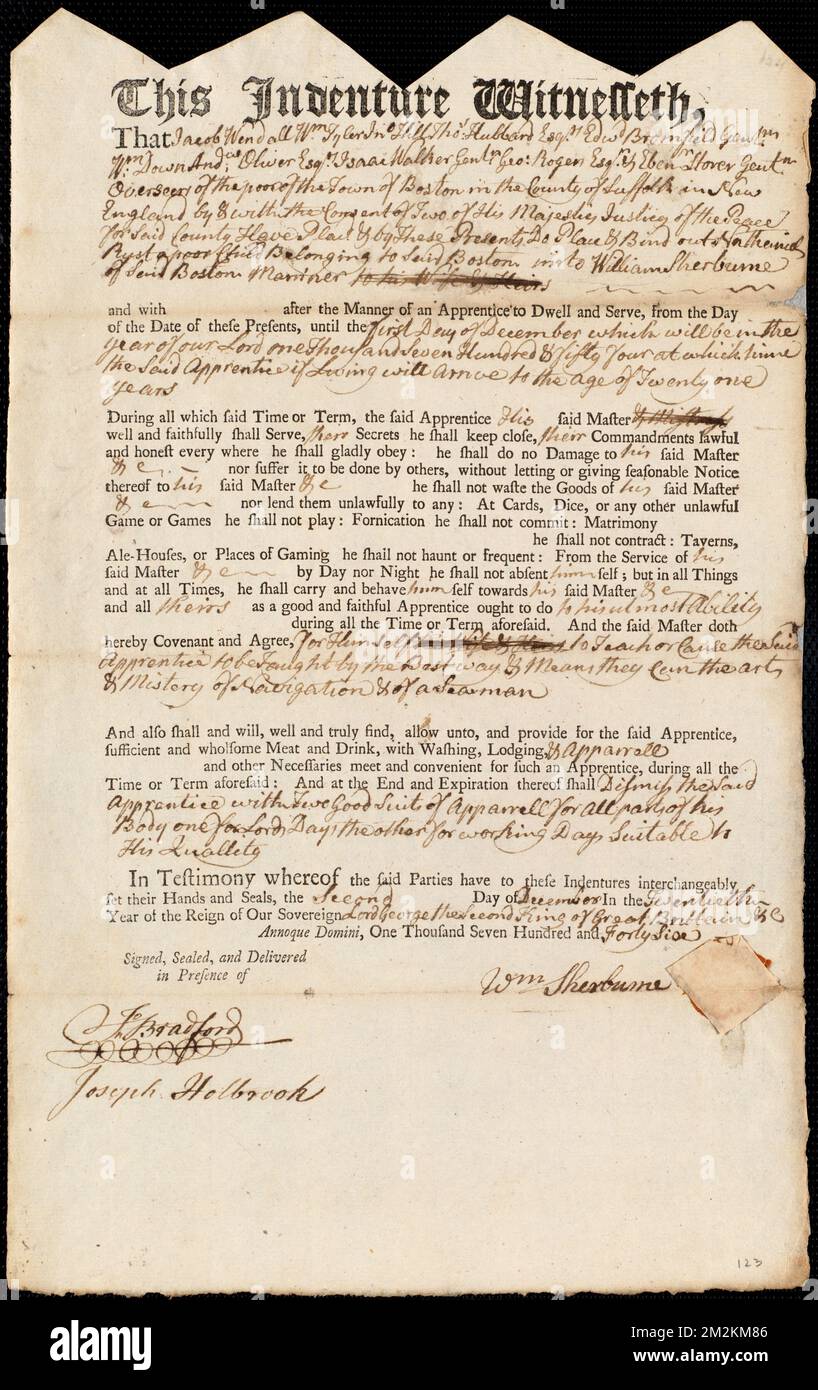 This Indenture Witnesseth,
That Jacob Wendall Wm Tyler Jno Hill Thos Hubbard Esqrs Edwd Bromfield Gentm
Wm Down Andw Oliver Esqrs Isaac Walker Gentn Geo: Rogers Esqr & Ebenr Storer Gentn
Overseers of the poor of the Town of Boston in the County of Suffolk in New
England by & with the Consent of Two of His Majesties Justices of the Peace
for Said County Have Plac't & by These Presents Do Place & Bind out Nathaniel
Ryst a poor Child Belonging to Said Boston unto William Sherburne
of Said Boston Marriner to his Wife & Heirs
and with after the Manner of an Apprentice to Dwell and Serve, from the Day
of the Date of these Presents, until the first Day of December which will be in the
year of our Lord one Thousand Seven Hundred & fifty four at which time
the Said Apprentice if Living will Arrive to the Age of Twenty one
years
During all which said Time or Term, the said Apprentice His said Master & Mistress
well and faithfully shall Serve, their Secrets he shall keep close, their Commandments lawful
and honest every where he shall gladly obey: he shall do no Damage to his said Master
&c nor suffer it to be done by others, without letting or giving seasonable Notice
thereof to his said Master &c he shall not waste the Goods of his said Master
&c nor lend them unlawfully to any: At Cards, Dice, or any other unlawful
Game or Games he shall not play: Fornication he shall not commit: Matrimony
he shall not contract: Taverns,
Ale-Houses, or Places of Gaming he shall not haunt or frequent: From the Service of his
said Master &c by Day nor Night he shall not absent him self; but in all Things
and at all Times, he shall carry and behave him self towards his said Master &c
and all theirs as a good and faithful Apprentice ought to do to his utmost Ability
during all the Time or Term aforesaid. And the said Master doth
hereby Covenant and Agree, for Himself his Wife & Heirs to Teach or Cause the Said
Apprentice to be Taught by the best way & Means they Can the art
& Mistery of Navigation & of a Seaman
And also shall and will, well and truly find, allow unto, and provide for the said Apprentice,
sufficient and wholsome Meat and Drink, with Washing, Lodging, & Apparrell
and other Necessaries meet and convenient for such an Apprentice, during all the
Time or Term aforesaid: And at the End and Expiration thereof shall Dismiss the Said
Apprentice with Two Good Suits of Apparrell for all parts of his
Body one for Lords Days the other for working Days Suitable to
His Quallity
In Testimony whereof the said Parties have to these Indentures interchangeably
set their Hands and Seals, the Second Day of December In the Twentieth
Year of the Reign of Our Sovereign Lord George the Second King of Great Brittain &c
Annoque Domini, One Thousand Seven Hundred and Forty Six
Signed, Sealed, and Delivered
in Presence of
Wm Sherburne
Jo Bradford
Joseph Holbrook
123
alamy
Image ID: 2M2KM86
www.alamy.com